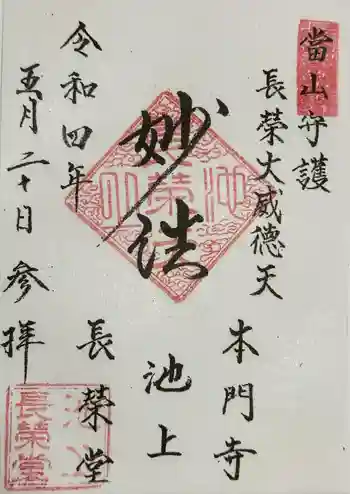 當山守護
長榮大威德天
妙法
本門寺
池上
長榮堂
令和四年
五月二十日参拝
池上
長榮堂